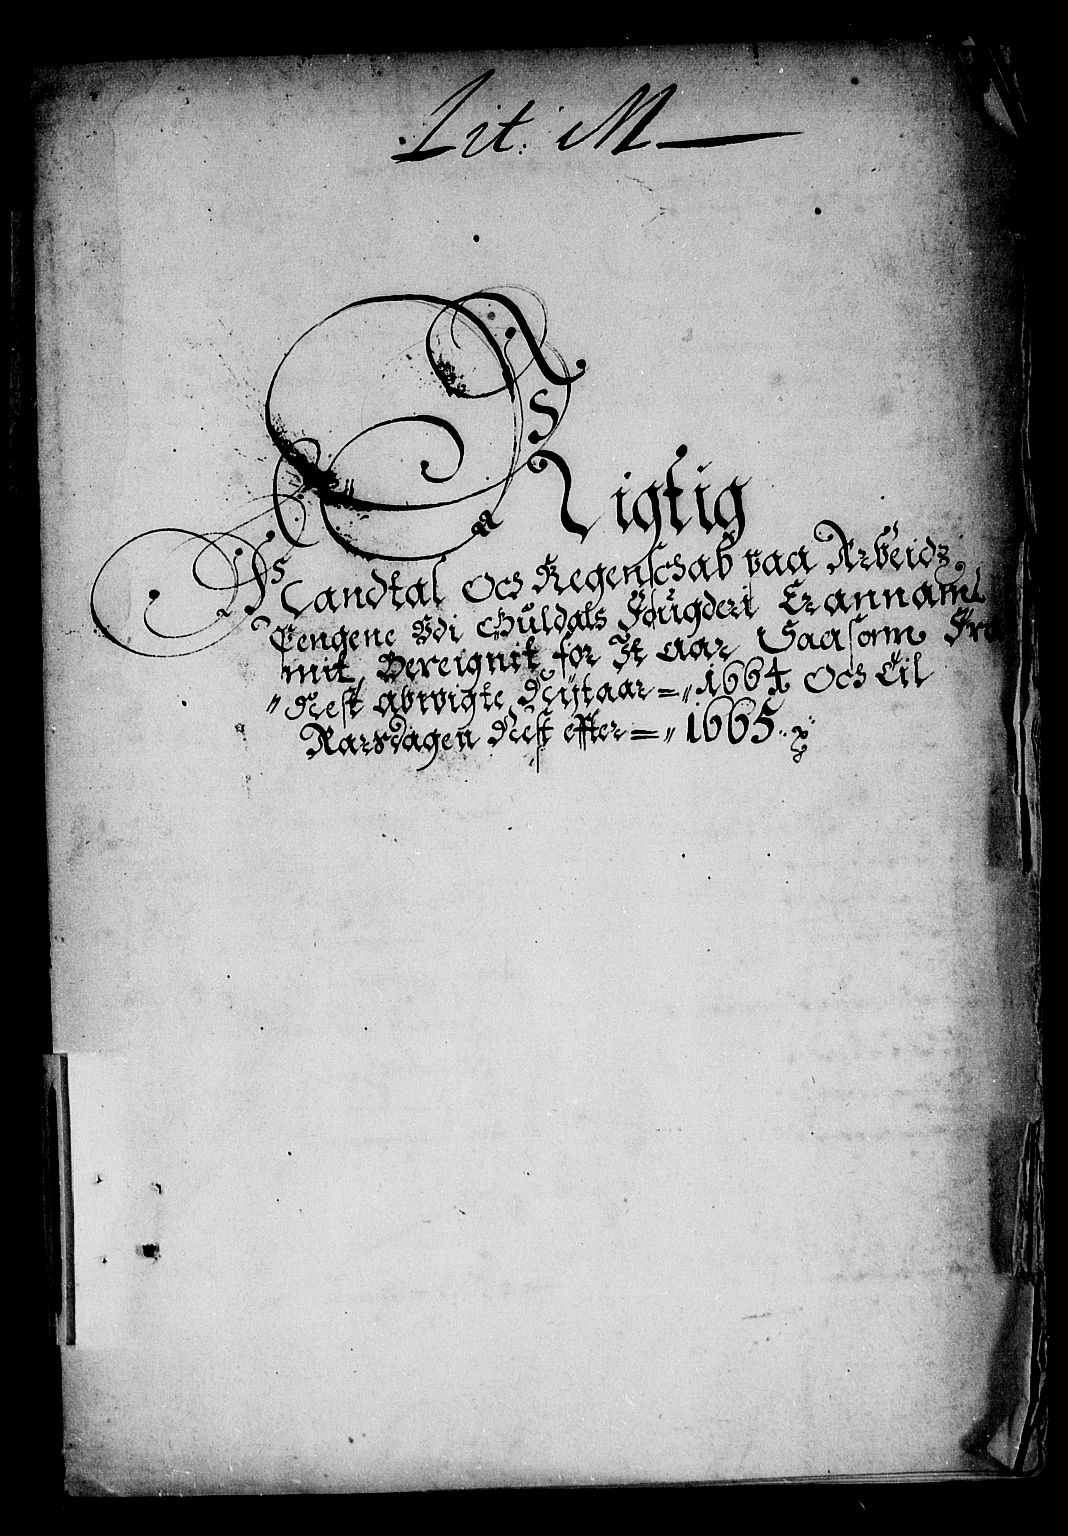 Lit: M
Rigtig
Mandtal Och Regenschab paa Arbeidz
Pengene Vdi Guldals Fougderi Erannaml
mit, Bereignit for It aar Saasom Fra
Nest abwigte Nijtaar = 1664 Och Til
Aarsdagen Nest effter = 1665